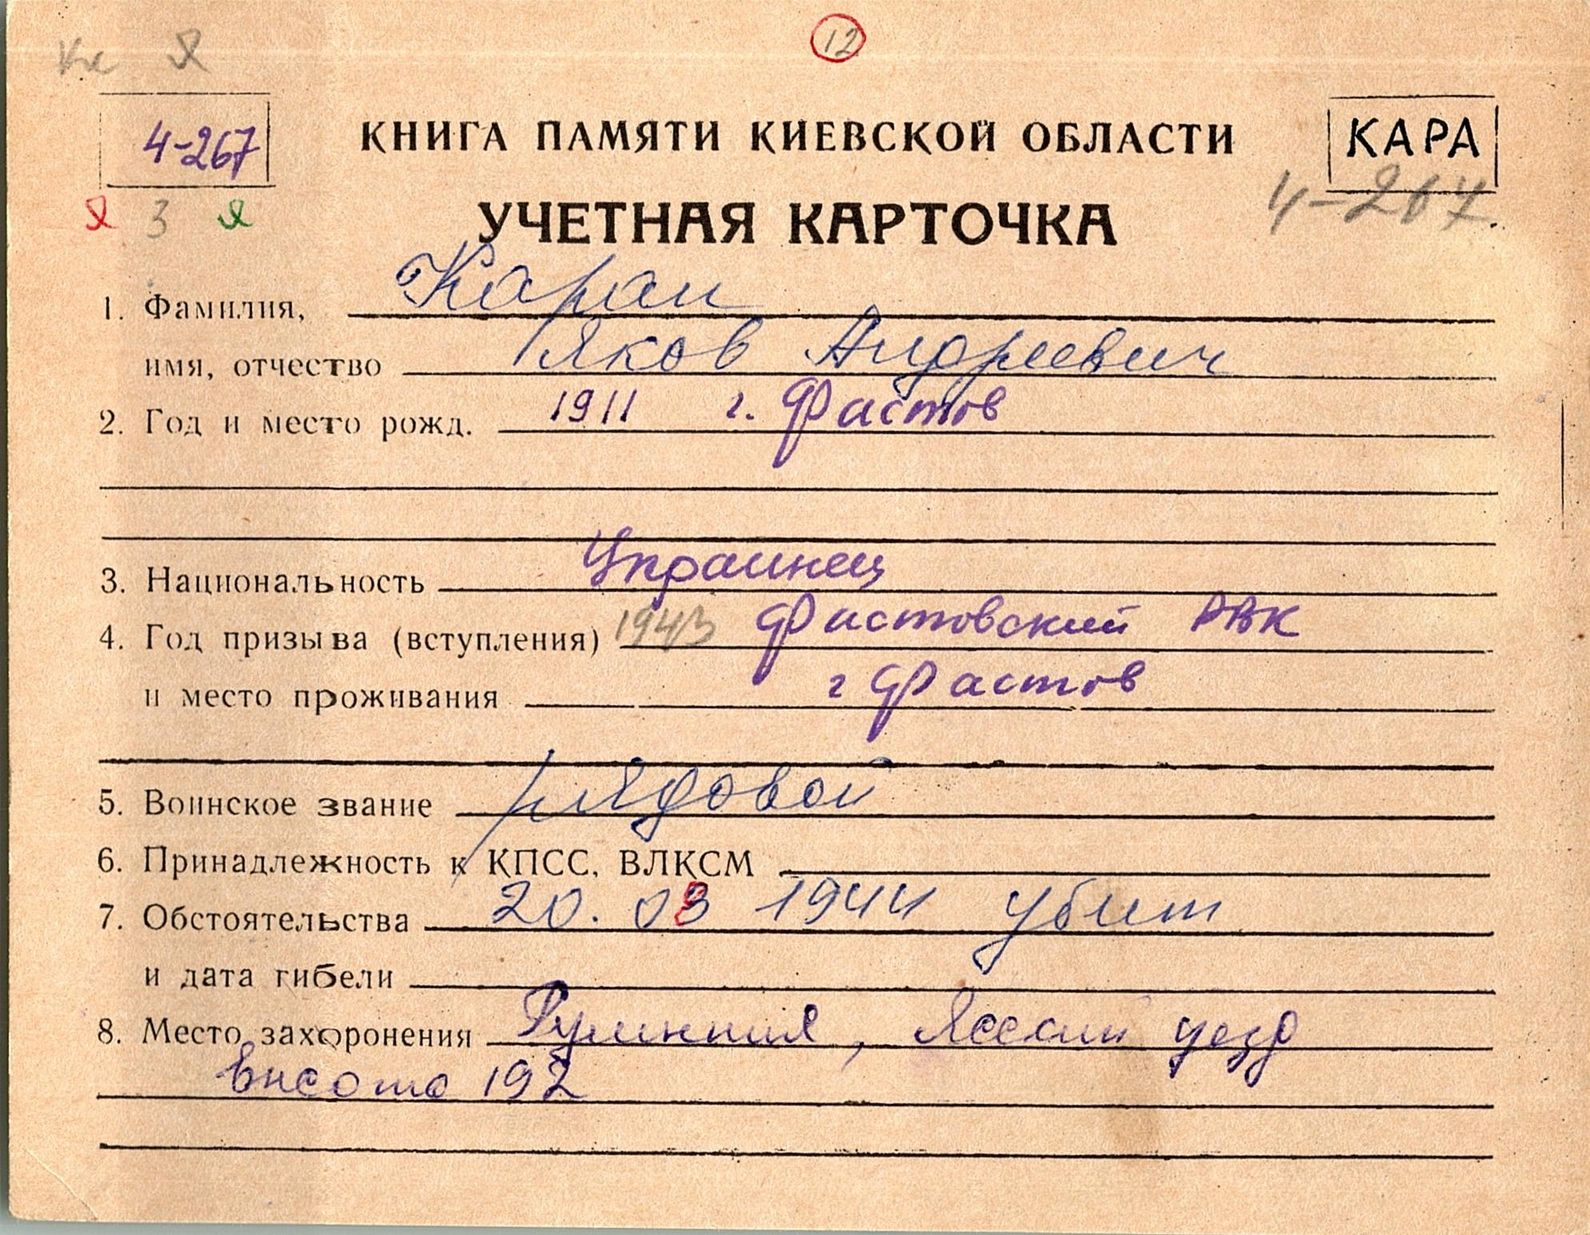 12
4-267
КНИГА ПАМЯТИ КИЕВСКОЙ ОБЛАСТИ
КАРА
4-267.
Я 3 Я
УЧЕТНАЯ КАРТОЧКА
1. Фамилия, Каран
имя, отчество Яков Андреевич
2. Год и место рожд. 1911 г. Фастов
3. Национальность Украинец
4. Год призыва (вступления) 1943 Фастовский РВК
и место проживания г Фастов
5. Воинское звание рядовой
6. Принадлежность к КПСС, ВЛКСМ
7. Обстоятельства 20. 03 1944 убит
и дата гибели
8. Место захоронения Румыния, Ясский уезд
высота 192